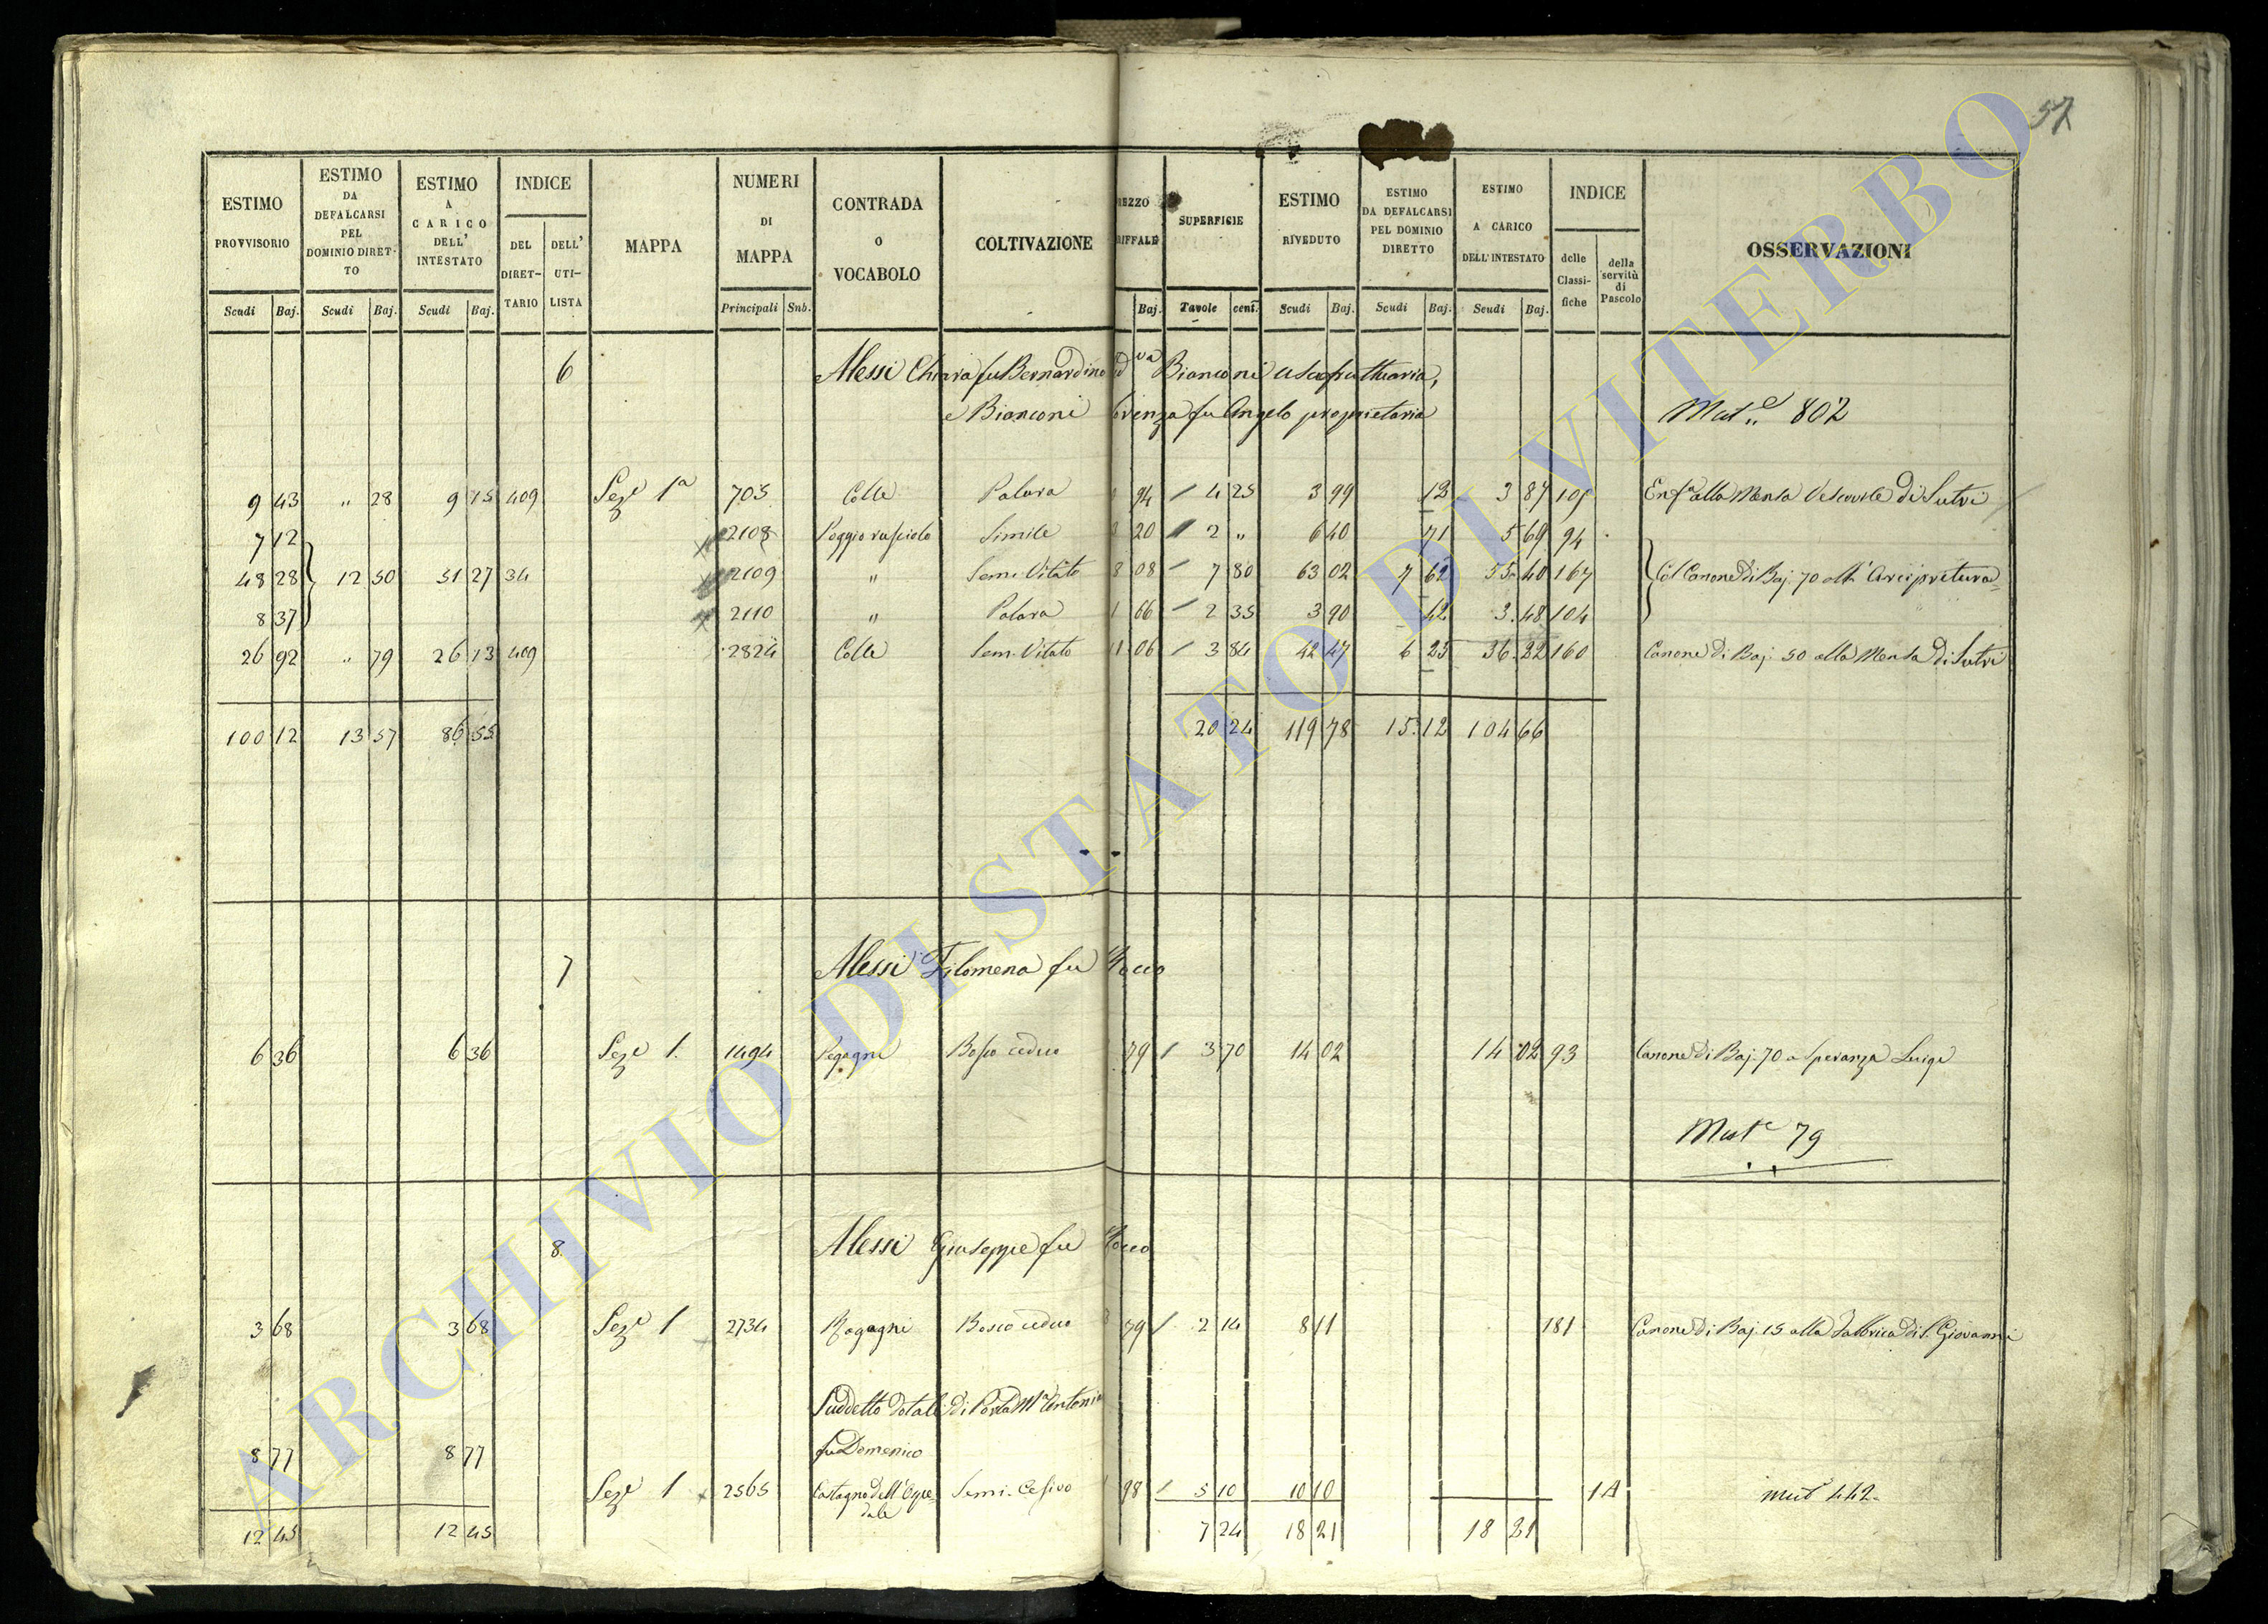 57
ESTIMO PROVVISORIO Scudi Baj.
ESTIMO DA DEFALCARSI PEL DOMINIO DIRETTO Scudi Baj.
ESTIMO A CARICO DELL' INTESTATO Scudi Baj.
INDICE DEL DIRETTARIO DELL' UTILISTA
MAPPA
NUMERI DI MAPPA Principali Sub.
CONTRADA O VOCABOLO
COLTIVAZIONE
REZZO RIFFALE Baj.
SUPERFICIE Tavole cent.
ESTIMO RIVEDUTO Scudi Baj.
ESTIMO DA DEFALCARSI PEL DOMINIO DIRETTO Scudi Baj.
ESTIMO A CARICO DELL' INTESTATO Scudi Baj.
INDICE delle Classifiche della servitù di Pascolo
OSSERVAZIONI
6 Alessi Chiara fu Bernardino Bianconi usufruttuaria,
e Bianconi fu Angelo proprietaria Mut.e 802
9 43 " 28 9 15 409 Sez.e 1a 705 Colle Palara 94 4 25 3 99 12 3 87 105 Enf.a alla Mensa Vescovile di Sutri
7 12 2108 Poggio Simile 20 2 " 6 40 71 5 69 94
48 28 12 50 51 27 34 2109 " Sem. Vitato 08 7 80 63 02 7 62 55 40 167 Col Canone di Baj. 70 all' Arcipretura
8 37 2110 " Palara 1 66 2 35 3 90 42 3 48 104
26 92 " 79 26 13 409 2824 Colle Sem. Vitato 11 06 3 84 42 47 6 25 36 22 160 Canone di Baj. 50 alla Mensa di Sutri
100 12 13 57 86 55 20 24 119 78 15 12 104 66
7 Alessi Filomena fu Rocco
6 36 6 36 Sez.e 1. 1494 Bosco ceduo 79 3 70 14 02 14 02 93 Canone di Baj. 70 a Speranza Luigi
Mut.e 79
8. Alessi Giuseppe fu Rocco
3 68 3 68 Sez.e 1 2734 Ragagni Bosco ceduo 79 2 14 8 11 181 Canone di Baj. 15 alla Fabbrica di S. Giovanni
Suddetto dotale di Porta M.a Antonia
8 77 8 77 fu Domenico
Sez.e 1 2565 Castagno dell' Semi. Cesivo 98 5 10 10 10 1A mut.e 442.
12 45 12 45 7 24 18 21 18 21
ARCHIVIO DI STATO DI VITERBO